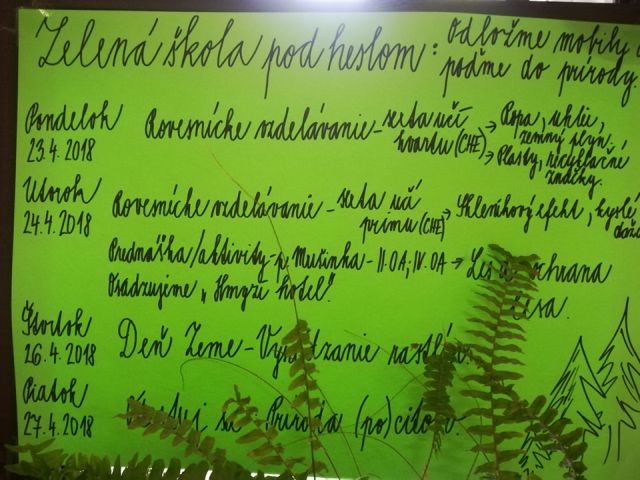 Zelená škola pod heslom: Odložme mobily
poďme do prírody.
Pondelok
23.4.2018
Rovesnícke vzdelávanie - sexta učí
kvartu (CHE)
→ Ropa, uhlie,
zemný plyn.
→ Plasty, recyklačné
značky.
Utorok
24.4.2018
Rovesnícke vzdelávanie - sexta učí
primu (CHE)
→ Skleníkový efekt, kyslé
Prednáška/aktivity - p. Mušinka - II.OA; IV.OA → Les
ochrana
lesa.
Osadzujeme „Hmyzí hotel".
Štvrtok
26.4.2018
Deň Zeme -
Piatok
27.4.2018
Príroda (po)citom.